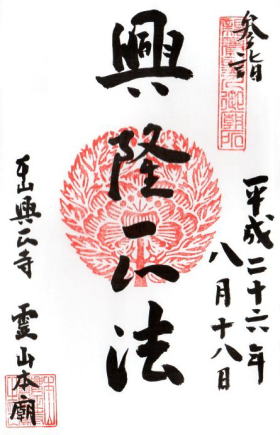 参詣
平成二十六年
八月十八日
興隆正法
本山興正寺
霊山本廟